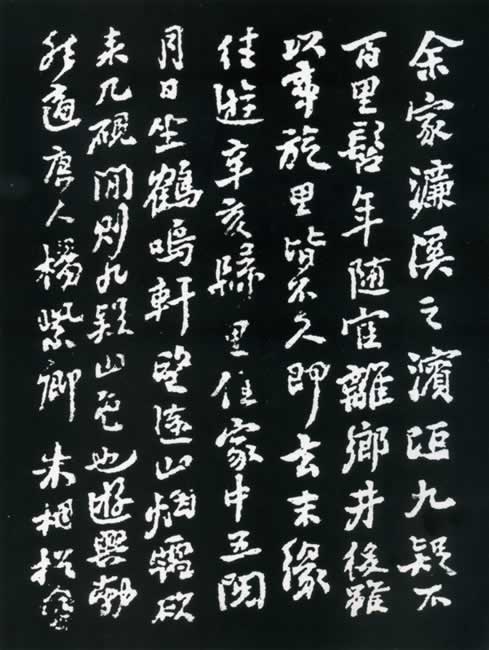 余家濂溪之濱距九疑不
百里髫年随宦離鄉井後雖
以事旋里皆不久即去未緣
往遊辛亥歸里住家中五閱
月日坐鶴鳴軒望遠山烟靄欲
来几硯間則九疑山色也遊興勃
然適唐人楊紫卿 朱桐松